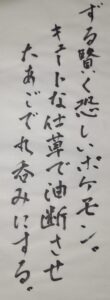 ずる賢く恐しいポケモン。
キュートな仕草で油断させ
大あごでれ呑みにする。